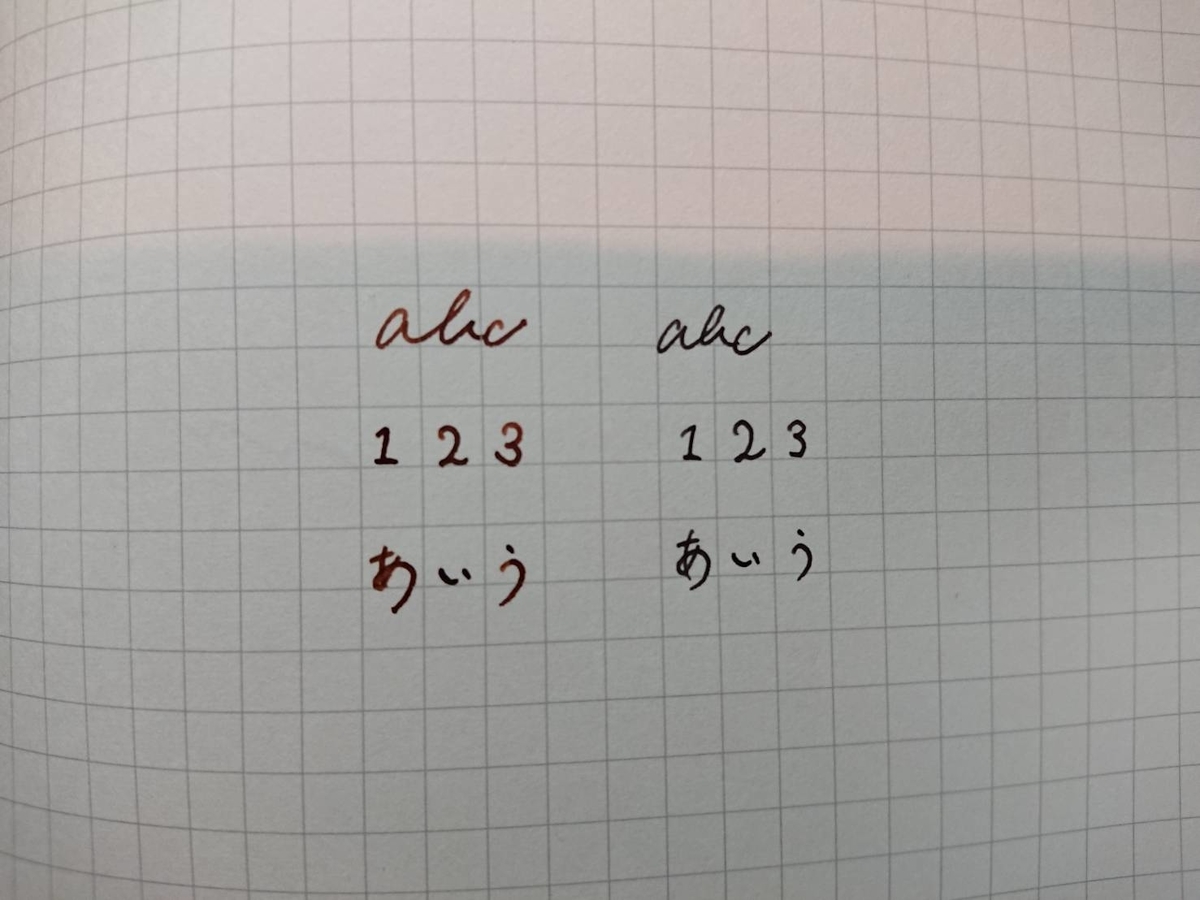 abc abc
1 2 3 1 2 3
あいう あいう